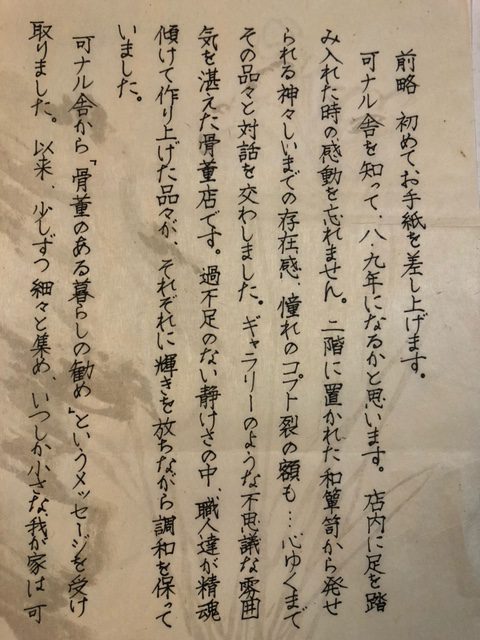 前略 初めてお手紙を差し上げます。
可ナル舎を知って、八・九年になるかと思います。店内に足を踏
み入れた時の感動を忘れません。二階に置かれた和箪笥から発せ
られる神々しいまでの存在感、憧れのコプト裂の額も…心ゆくまで
その品々と対話を交わしました。ギャラリーのような不思議な雰囲
気を湛えた骨董店です。過不足のない静けさの中、職人達が精魂
傾けて作り上げた品々が、それぞれに輝きを放ちながら調和を保って
いました。
可ナル舎から「骨董のある暮らしの勧め」というメッセージを受け
取りました。以来、少しずつ細々と集め、いつしか小さな我が家は可